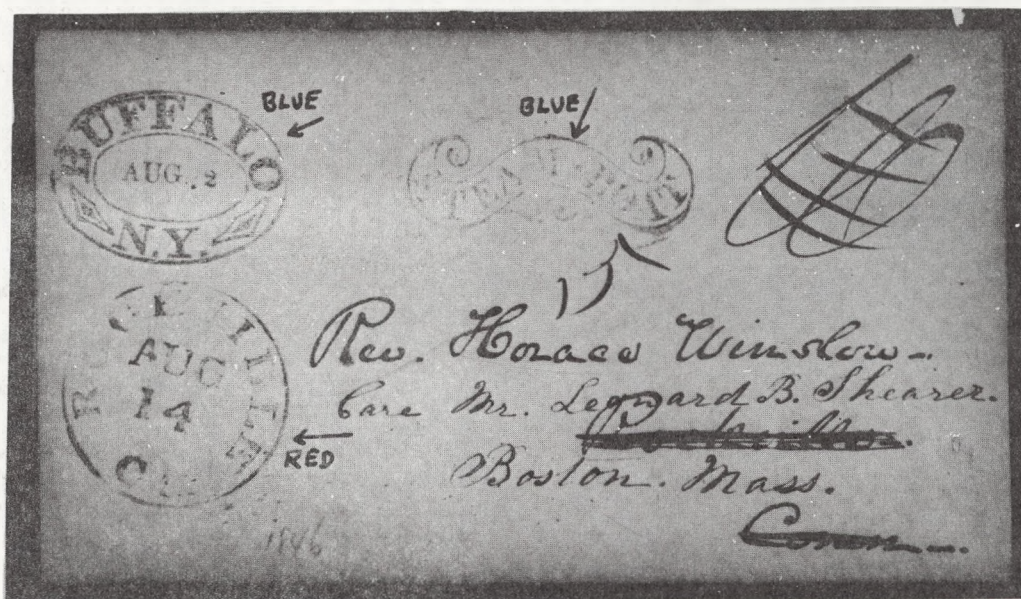 BUFFALO
AUG. 2
N.Y.
BLUE
BLUE
STEAM-BOAT
15
ROCKVILLE
AUG
14
RED
Rev. Horace Winslow
Care Mr. Leonard B. Shearer.
Boston. Mass.
Conn
1846